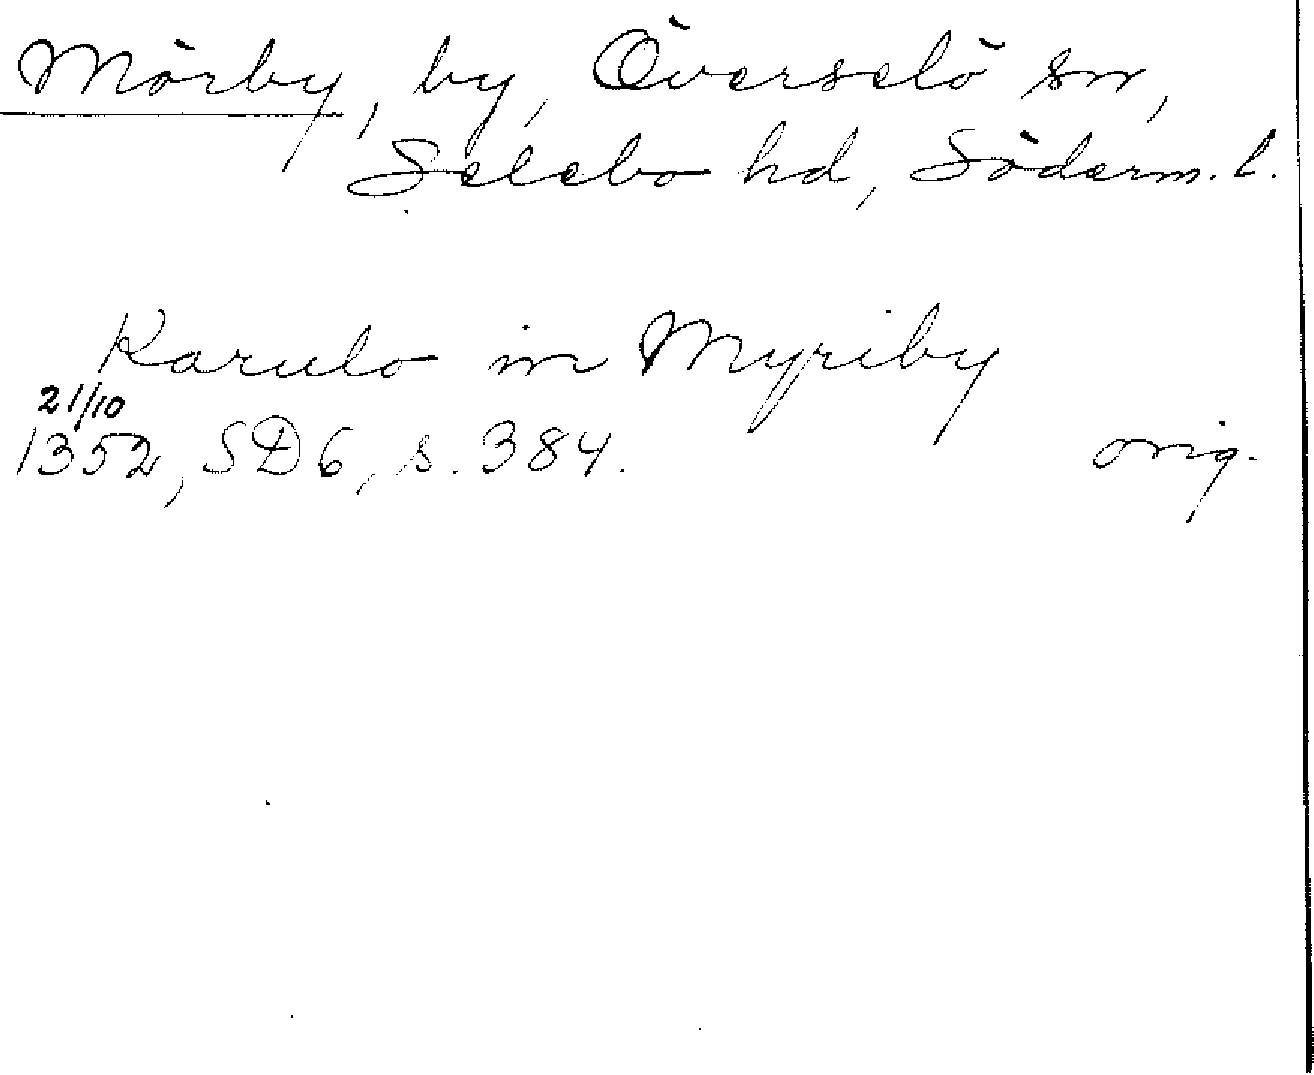 Mörby, by, Överselö sn,
Selebo hd, Söderm. l.
Karulo in Myriby
21/10
1352, SD 6, s. 384. orig.